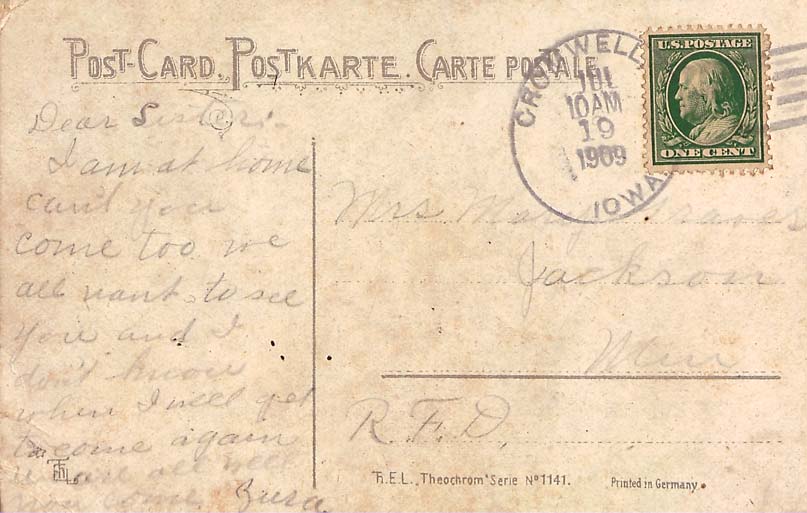 POST-CARD. POSTKARTE. CARTE POSTALE.
CROMWELL
JUL
10AM
19
1909
IOWA
U.S. POSTAGE
ONE CENT
Dear Sister:-
I am at home
can't you
come too we
all want to see
you and I
don't know
when I will get
to come again
we are all well
you come.
Mrs Mary Graves
Jackson
Minn
R.F.D.
T.S.N.
Th.E.L. „Theochrom" Serie No 1141.
Printed in Germany